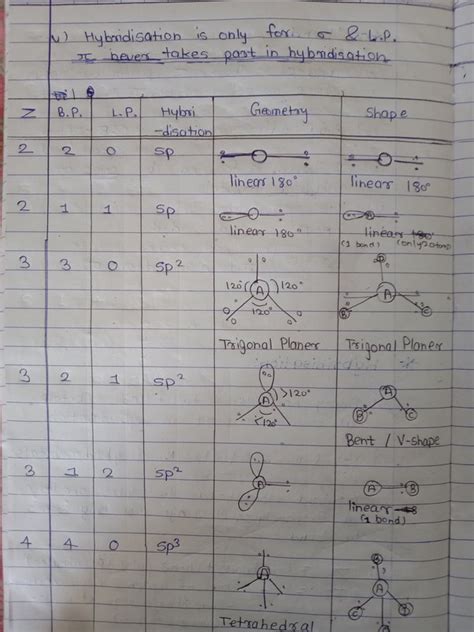 v) Hybridisation is only for σ & L.P.
π never takes part in hybridisation
Z B.P. L.P. Hybri Geometry Shape
-disation
2 2 0 sp
linear 180° linear 180°
2 1 1 sp
linear 180° linear 180°
(1 bond) (only 2 atoms)
3 3 0 sp² A 120° 120° 120° A B C
Trigonal Planer Trigonal Planer
3 2 1 sp² A >120° <120° A B C
Bent / V-shape
3 1 2 sp² A A B
linear
(1 bond)
4 4 0 sp³ A A B C
Tetrahedral